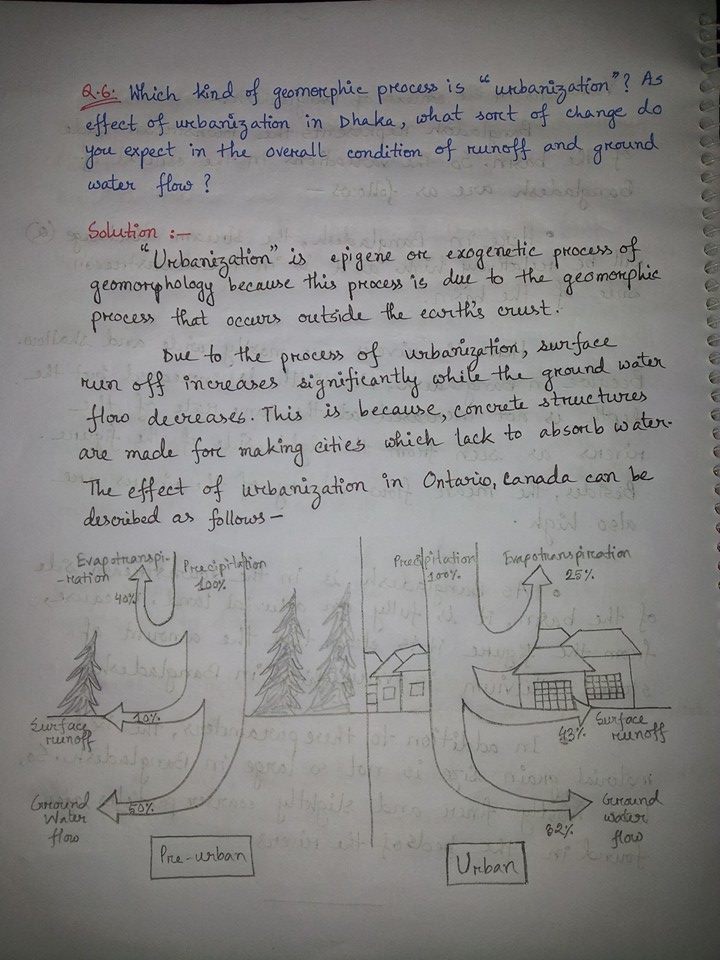 Q.6. Which kind of geomorphic process is "urbanization"? As
effect of urbanization in Dhaka, what sort of change do
you expect in the overall condition of runoff and ground
water flow?
Solution :-
"Urbanization" is epigene or exogenetic process of
geomorphology because this process is due to the geomorphic
process that occurs outside the earth's crust.
Due to the process of urbanization, surface
run off increases significantly while the ground water
flow decreases. This is because, concrete structures
are made for making cities which lack to absorb water.
The effect of urbanization in Ontario, Canada can be
described as follows-
Evapotranspi-
-ration
40%
Precipitation
100%
10%
Surface
runoff
50%
Ground
Water
flow
Pre-urban
Precipitation
100%
Evapotranspiration
25%
43%
Surface
runoff
32%
Ground
water
flow
Urban